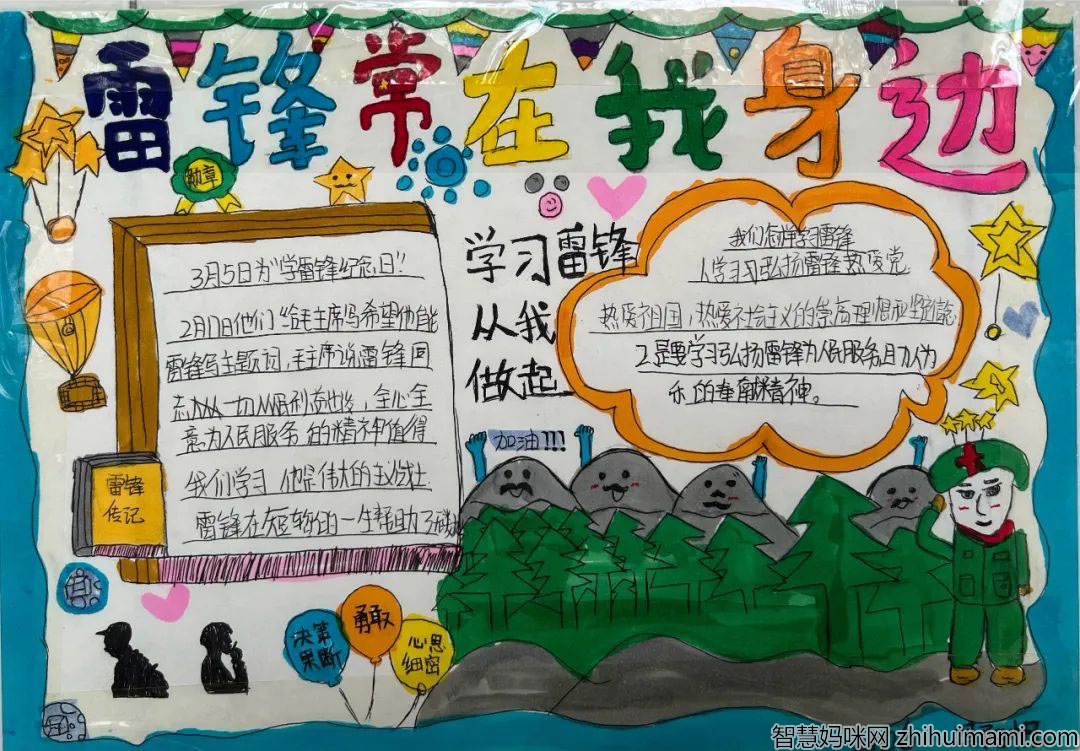 雷锋常在我身边
勋章
3月5日为"学雷锋纪念日"!
2月17日他们给毛主席写希望他能
雷锋写主题词,毛主席说雷锋同
志 一切从 利益出发,全心全
意为人民服务的精神值得
我们学习 他是伟大的
雷锋在短暂的一生帮助了
雷锋
传记
学习雷锋
从我
做起
我们怎样学习雷锋
1学习弘扬雷锋热爱党
热爱祖国,热爱社会主义的崇高理想和坚定信念
2是要学习弘扬雷锋为人民服务助人为
乐的奉献精神。
加油!!!
决策
果断
勇敢
心思
细密
智慧妈咪网 zhihuimami.com